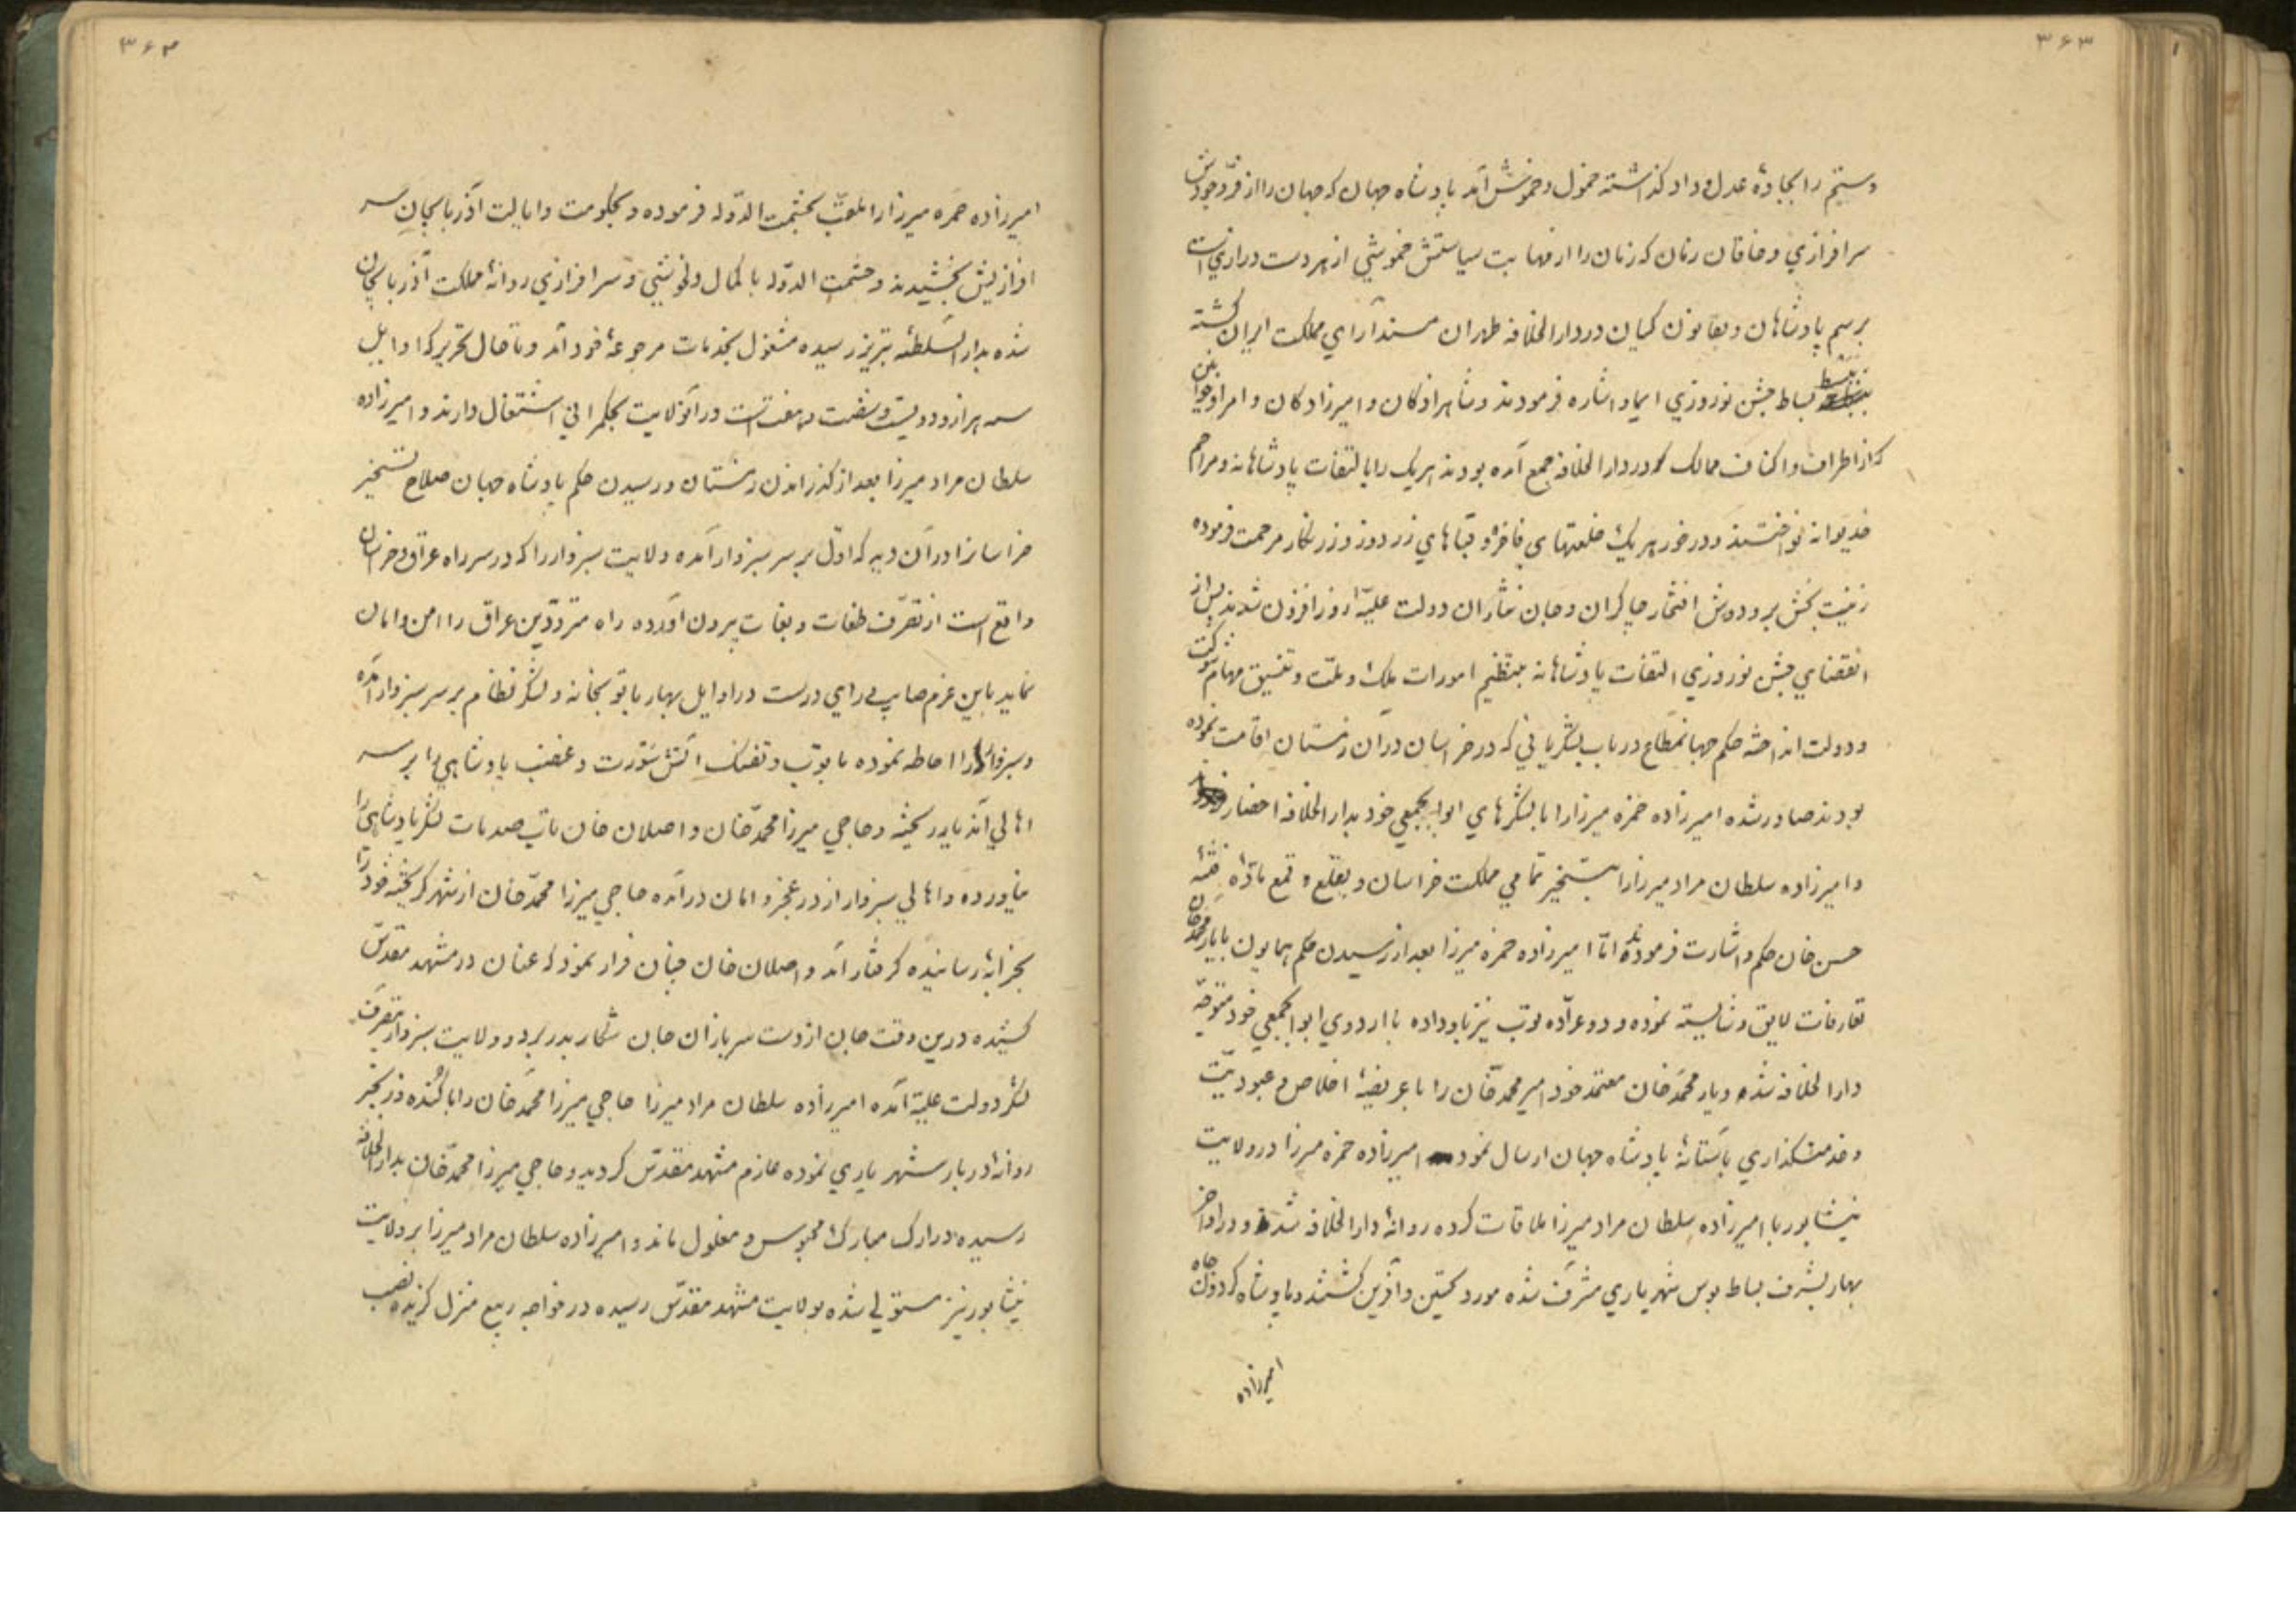 ۳۶۳
و ستم را بجادهٔ عدل و داد گذاشته خمول و خموش آمد پادشاه جهان که جهان را از فرّ وجودش
سرافرازی و خاقان زمان که زمان را از مهابت سیاستش خموشی از هر دست درازی است
برسم پادشاهان و بقانون کیان در دار الخلافه طهران مسند آرای مملکت ایران گشته
ببسط بساط جشن نوروزی ایما و اشاره فرمودند و شاهزادگان و امیرزادگان و امرا و خوانین
که از اطراف و اکناف ممالک در دار الخلافه جمع آمده بودند هریک را بالتفات پادشاهانه و مراحم
خدیوانه نواختند و در خور هر یک خلعتهای فاخره و قباهای زر دوز و زرنگار مرحمت فرموده
زینت بخش بر و دوش افتخار چاکران و جان نثاران دولت علیّه روز افزون شدند پس از
انقضای جشن نوروزی التفات پادشاهانه بتنظیم امورات ملک و ملّت و تنسیق مهام شوکت
و دولت انداخته حکم جهانمطاع در باب لشکریانی که در خراسان در آن زمستان اقامت نموده
بودند صادر شده امیرزاده حمزه میرزا را با لشکرهای ابوابجمعی خود بدار الخلافه احضار
و امیرزاده سلطان مراد میرزا را بتسخیر تمامی مملکت خراسان و بقلع و قمع مادّهٔ فتنهٔ
حسن خان حکم و اشارت فرموده امّا امیرزاده حمزه میرزا بعد از رسیدن حکم همایون با یار محمد خان
تعارفات لایق و شایسته نموده و دو عرّاده توپ نیز باو داده با اردوی ابوابجمعی خود متوجّه
دار الخلافه شد و یار محمد خان معتمد خود امیر محمد خان را با عریضهٔ اخلاص و عبودیّت
و خدمتگذاری باستانهٔ پادشاه جهان ارسال نمود امیرزاده حمزه میرزا در ولایت
نیشابور با امیرزاده سلطان مراد میرزا ملاقات کرده روانهٔ دار الخلافه شد و در اواخر
بهار بشرف بساط بوس شهریاری مشرّف شده مورد تحسین و آفرین گشتند و پادشاه گردون جاه
امیرزاده
۳۶۴
امیرزاده حمزه میرزا را ملقّب بحشمت الدّوله فرموده و بحکومت و ایالت آذربایجان سر
افرازیش بخشیدند و حشمت الدّوله با کمال دلخوشی و سرافرازی روانهٔ مملکت آذربایجان
شده بدار السّلطنهٔ تبریز رسیده مشغول بخدمات مرجوعهٔ خود آمد و تا حال تحریر که اوایل
سنه هزار و دویست و شصت و هفت است در آنولایت بحکمرانی اشتغال دارند و امیرزاده
سلطان مراد میرزا بعد از گذراندن زمستان و رسیدن حکم پادشاه جهان صلاح تسخیر
خراسانرا در آن دید که اوّل بر سر سبزوار آمده ولایت سبزوار را که در سر راه عراق و خراسان
واقع است از تصرّف طغات و بغات بیرون آورده راه متردّدین عراق را امن و امان
نماید باین عزم صایب و رای درست در اوایل بهار با توپخانه و لشکر نظام بر سر سبزوار آمده
و سبزوار را احاطه نموده با توپ و تفنگ آتش سَورت و غضب پادشاهی را بر سر
اهالی آندیار ریخته و حاجی میرزا محمّد خان و اصلان خان تاب صدمات لشکر پادشاهی را
نیاورده و اهالی سبزوار از در عجز و امان درآمده حاجی میرزا محمّد خان از شهر گریخته خود را
بخرابهٔ رسانیده گرفتار آمد و اصلان خان چنان فرار نمود که عنان در مشهد مقدّس
کشیده درین وقت جان از دست سربازان جان شکار بدر برد و ولایت سبزوار بتصرّف
لشکر دولت علیّه آمده امیرزاده سلطان مراد میرزا حاجی میرزا محمّد خان را با کُنده و زنجیر
روانهٔ دربار شهریاری نموده عازم مشهد مقدّس گردید و حاجی میرزا محمّد خان بدار الخلافه
رسیده در ارک مبارک محبوس و مغلول ماند و امیرزاده سلطان مراد میرزا بر ولایت
نیشابور نیز مستولی شده بولایت مشهد مقدّس رسیده در خواجه ربیع منزل گزیده نصب